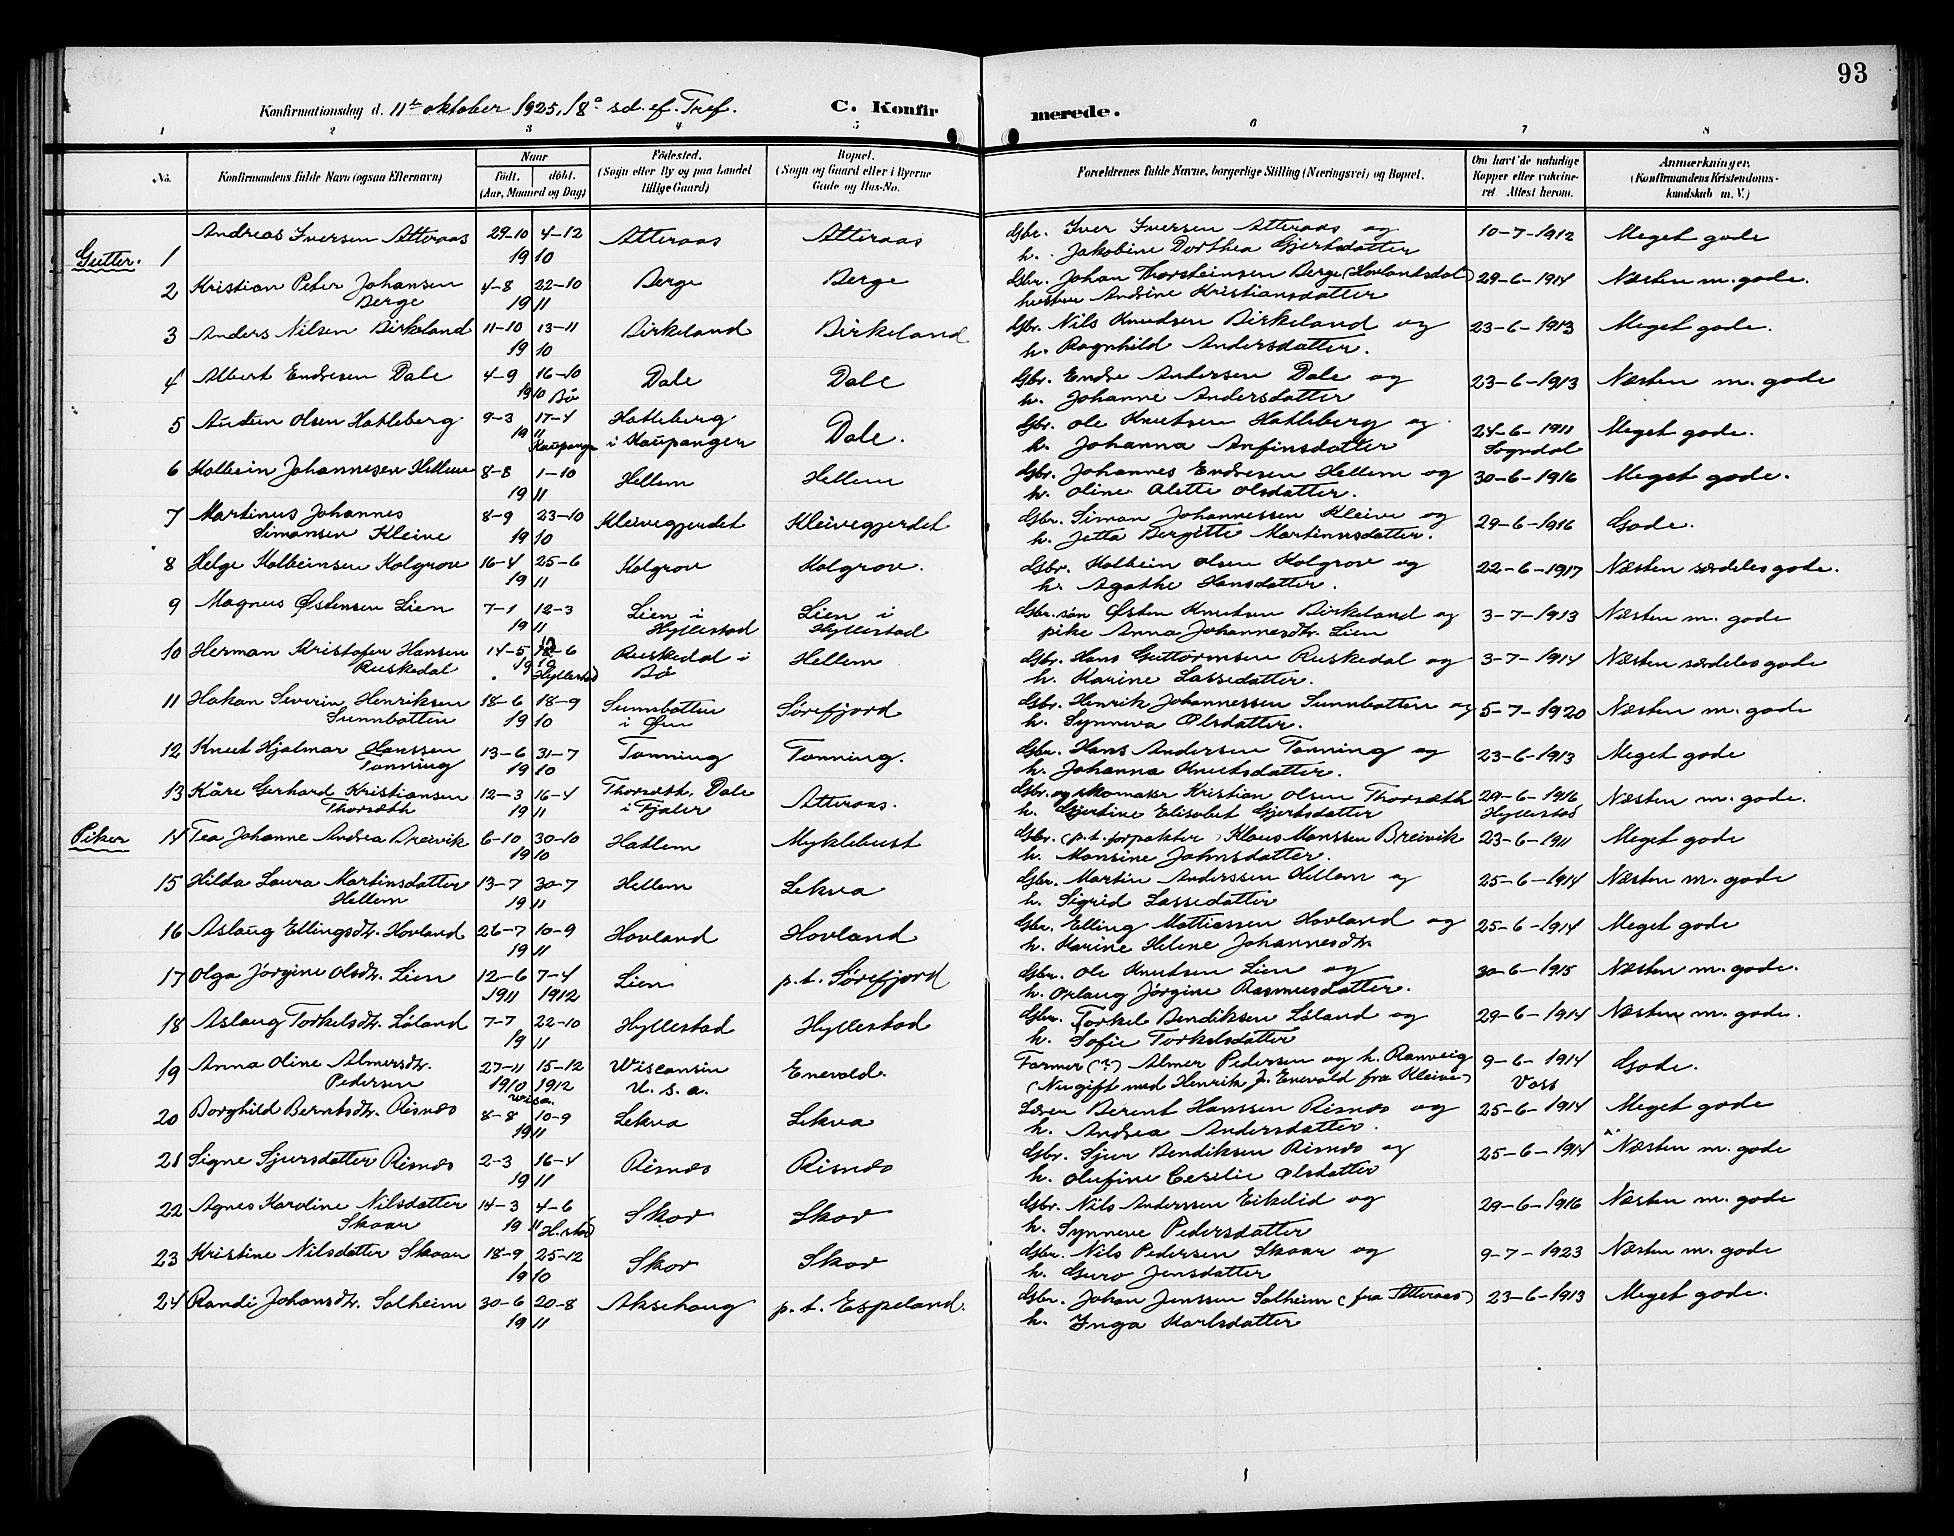 93
Konfirmationsdag d. 11te oktober 1925, 18de sd. ef. Tref. C. Konfirmerede.
1 2 3 4 5 6 7 8
No. Konfirmandens fulde Navn (ogsaa Efternavn) Naar Födt. döbt. (Aar, Maaned og Dag) Födested. (Sogn eller By og paa Landet tillige Gaard) Bopæl. (Sogn og Gaard eller i Byerne Gade og Hus-No. Forældrenes fulde Navne, borgerlige Stilling (Næringsvei) og Bopæl. Om havt de naturlige Kopper eller vakcineret Attest herom. Anmærkninger. (Konfirmandens Kristendomskundskab m. V.)
Gutter. 1 Andreas Iversen Atteraas 29-10 4-12 1910 Atteraas Atteraas Gbr. Iver Iversen Atteraas og h. Jakobine Dorthea Gjertsdatter 10-7-1912 Meget gode
2 Kristian Peter Johansen Berge 4-8 22-10 1911 Berge Berge Gbr. Johan Thorsteinsen Berge (Hovlandsdal) hustru Andrine Kristiansdatter 29-6-1914 Næsten m. gode.
3 Anders Nilsen Birkeland 11-10 13-11 1910 Birkeland Birkeland Gbr. Nils Knudsen Birkeland og h. Ragnhild Andersdatter. 23-6-1913 Meget gode.
4 Albert Endresen Dale 4-9 16-10 1910 Bø Dale Dale Gbr. Endre Andersen Dale og h. Johanne Andersdatter 23-6-1913 Næsten m. gode
5 Audun Olsen Hatleberg 9-3 17-4 1911 Kaupanger Hatleberg i Kaupanger Dale. Gbr. Ole Knutsen Hatleberg og h. Johanna Anfinsdatter 24-6-1911 Sogndal Meget gode.
6 Kolbein Johannesen Hellem 8-8 1-10 1911 Hellem Hellem Gbr. Johannes Endresen Hellem og h. Oline Olette Olsdatter. 30-6-1916 Meget gode.
7 Martinus Johannes Simonsen Kleive 8-9 23-10 1910 Kleivegjerdet Kleivegjerdet Gbr. Simon Johannessen Kleive og h. Jetta Bergitte Martinusdatter. 29-6-1916 Gode.
8 Helge Kolbeinsen Kolgrov 16-4 25-6 1911 Kolgrov Kolgrov. Gbr. Kolbein Olsen Kolgrov og h. Agathe Hansdatter. 22-6-1917 Næsten særdeles gode.
9 Magnus Østensen Lien 7-1 12-3 1911 Lien i Hyllestad Lien i Hyllestad Gbr. søn Østen Knutsen Birkeland og pike Anna Johannesdtr. Lien 3-7-1913 Næsten m. gode
10 Herman Kristofer Hansen Ruskedal 14-5 12-6 1910 Hyllestad Ruskedal i Bø Hellem Gbr. Hans Guttormsen Ruskedal og h. Karine Lassedatter. 3-7-1914 Næsten særdeles gode
11 Hakon Severin Henriksen Sunnbotten 18-6 18-9 1910 Sunnbotten i Øen Sørefjord Gbr. Henrik Johannessen Sunnbotten og h. Synneva Olsdatter. 5-7-1920 Næsten m. gode
12 Knut Hjalmar Hanssen Tonning 13-6 31-7 1910 Tonning Tonning. Gbr. Hans Andersen Tonning og h. Johanna Knutsdatter. 23-6-1913 Meget gode
13 Kåre Gerhard Kristiansen Thorsæth 12-3 16-4 1911 Thorsæth, Dale i Fjaler Atteraas. Gbr. og skomaker Kristian Olsen Thorsæth h. Gjertine Elisabet Gjertsdatter 29-6-1916 Hyllestad Næsten m. gode.
Piker 14 Tea Johanne Andrea Breivik 6-10 30-10 1910 Hatlem Myklebust Gbr. (p.t. forpakter) Klaus Monssen Breivik h. Monsine Johnsdatter. 23-6-1911 Meget gode
15 Hilda Laura Martinsdatter Hellem 13-7 30-7 1911 Hellem Lekva Gbr. Martin Anderssen Hellem og h. Sigrid Lassedatter 25-6-1914 Næsten m. gode
16 Aslaug Ellingsdtr. Hovland 26-7 10-9 1911 Hovland Hovland Gbr. Elling Mattiassen Hovland og h. Karine Helene Johannesdtr. 25-6-1914 Meget gode
17 Olga Jørgine Olsdtr. Lien 12-6 1911 7-4 1912 Lien p.t. Sørefjord Gbr. Ole Knutsen Lien og h. Orlaug Jørgine Rasmusdatter. 30-6-1915 Næsten m. gode.
18 Aslaug Torkelsdtr. Løland 7-7 22-10 1911 Hyllestad Hyllestad Gbr. Torkel Bendiksen Løland og h. Sofie Torkelsdatter 29-6-1914 Næsten m. gode.
19 Anna Oline Almersdtr. Pedersen 27-11 1910 15-12 1912 Wisconsin U.s.a. Enevold. Farmer (?) Almer Pedersen og h. Ranveig (Nu gift med Henrik J. Enevold fra Kleive) 9-6-1914 Voss Gode.
20 Borghild Berntsdtr. Risnes 8-8 10-9 1911 Lekva Lekva Lærer Berent Hanssen Risnes og h. Andrea Andersdatter. 25-6-1914 Meget gode
21 Signe Sjursdatter Risnes 2-3 16-4 1911 Risnes Risnes Gbr. Sjur Bendiksen Risnes og h. Olufine Cecilie Olsdatter 25-6-1914 Næsten m. gode
22 Agnes Karoline Nilsdatter Skaar 14-3 4-6 1911 H.stad Skor Skor Gbr. Nils Andersen Eikelid og h. Synneve Pedersdatter 29-6-1916 Næsten m. gode
23 Kristine Nilsdatter Skaar 18-9 25-12 1910 Skor Skor Gbr. Nils Pedersen Skaar og h. Guro Jensdatter 9-7-1923 Næsten m. gode
24 Randi Johansdtr. Solheim 30-6 20-8 1911 Aksehaug p.t. Espeland. Gbr. Johan Jenssen Solheim (fra Atteraas) h. Inga Karlsdatter 23-6-1913 Meget gode.